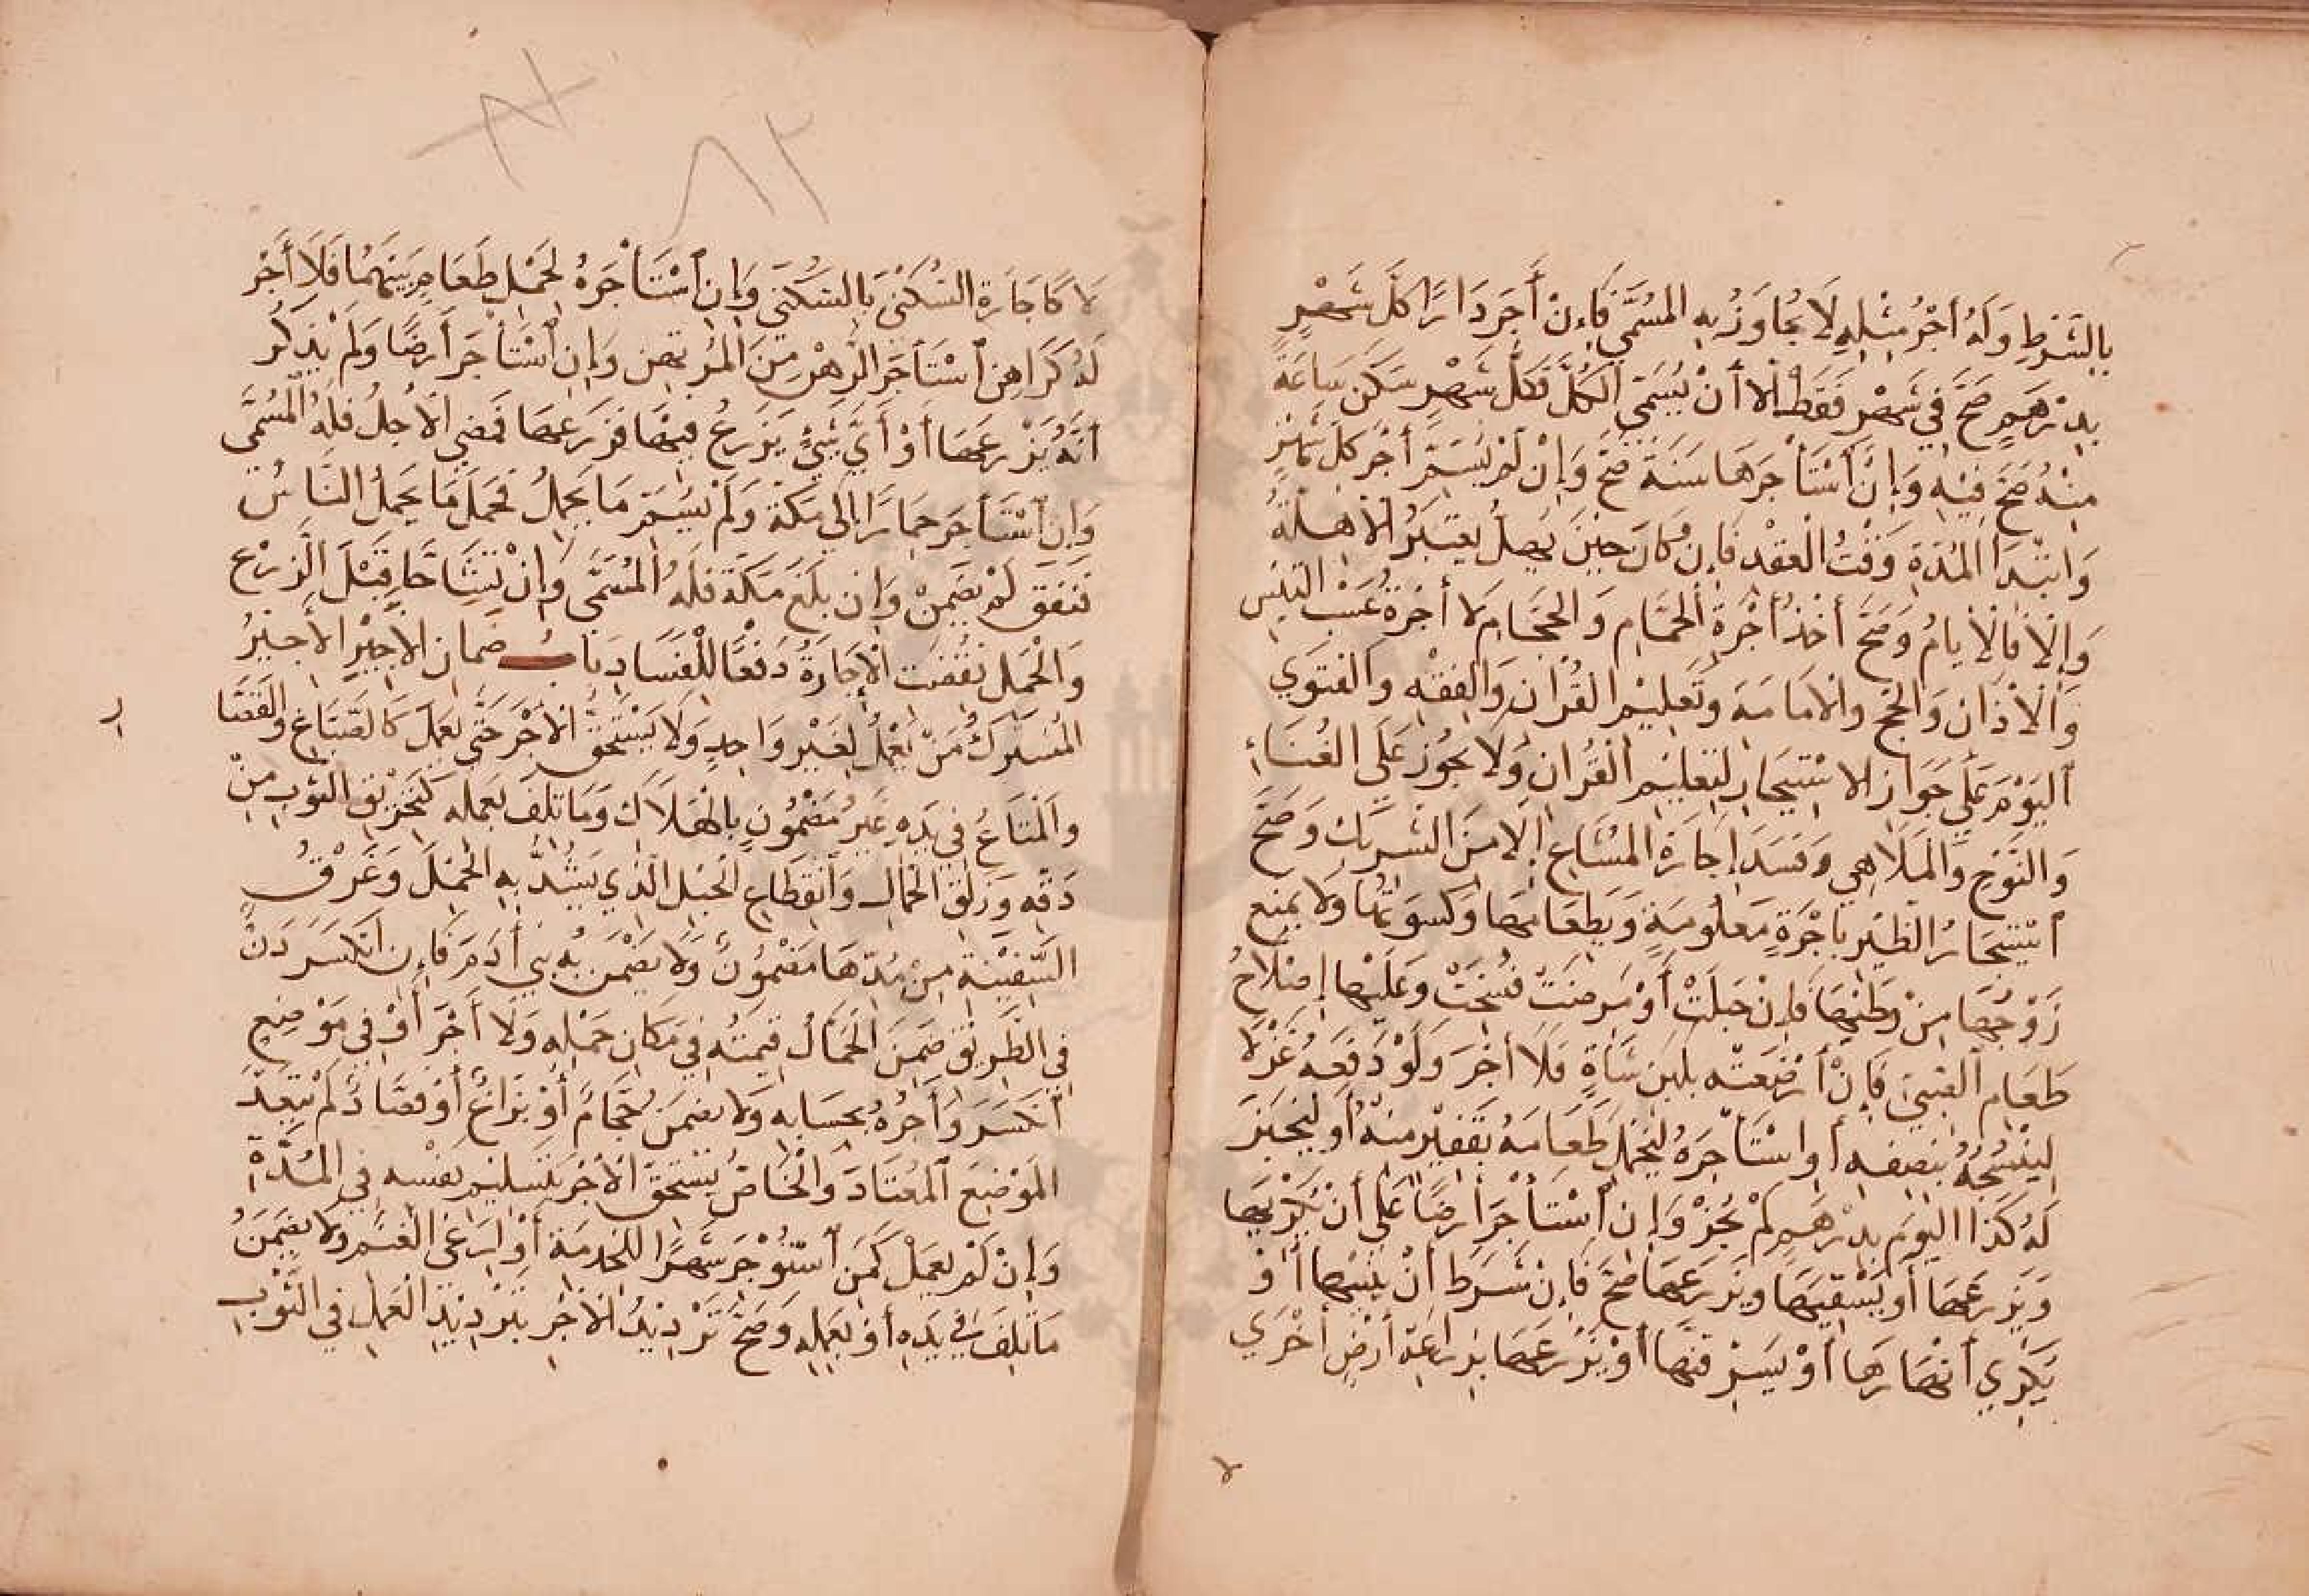 بِالشَّرْطِ وَلَهُ أَجْرُ مِثْلِهِ لَا يُجَاوَزُ بِهِ المُسَمَّى فَإِنْ أَجَرَ دَارًا كُلَّ شَهْرٍ
بِدِرْهَمٍ صَحَّ فِي شَهْرٍ فَقَطْ إلَّا أَنْ يُسَمَّى الكُلَّ فَكُلُّ شَهْرٍ سَكَنَ سَاعَةً
مِنْهُ صَحَّ فِيْهِ وَإِنْ اسْتَأْجَرَهَا سَنَةً صَحَّ وَإِنْ لَمْ يُسَمِّ أَجْرَ كُلِّ شَهْرٍ
وَابْتِدَا المُدَّةِ وَقْتُ الْعَقْدِ فَإِنْ كَانَ حِيْنَ يُهِلُّ يُعْتَبَرُ الْأَهِلَّةُ
وَإِلَّا فَالْأَيَامُ وَصَحَّ أَخْذُ أُجْرَةِ الْحَمَّامِ وَالحَجَّامِ لَا أُجْرَةُ عَسْبِ التَّيْسِ
وَالْأَذَانِ وَالْحَجِّ وَالْإمَامَةِ وَتَعْلِيْمِ الْقُرْآنِ وَالْفِقْهِ وَالْفَتْوَي
اَلْيَوْمَ عَلَى جَوَازِ الِاسْتِيْجَارِ لِتَعْلِيْمِ الْقُرْآنِ وَلَا يَجُوزُ عَلَى الْغِنَاءِ
وَالنَّوْحِ وَالْمَلَاهِي وَفَسَدَ إِجَارَةُ المُشَاعِ إِلَّا مِنَ الشَّرِيْكِ وَصَحَّ
اسْتِيْجَارُ الظِّئْرِ بِأُجْرَةٍ مَعْلُومَةٍ وَبِطَعَامِهَا وَكِسْوَتِهَا وَلَا يُمْنَعُ
زَوْجُهَا مِنْ وَطْئِهَا فَإِنْ حَبِلَتْ أَوْ مَرِضَتْ فُسِخَتْ وَعَلَيْهَا إِصْلَاحُ
طَعَامِ الصَّبِيِّ فَإِنْ أَرْضَعَتْهُ بِلَبَنِ شَاةٍ فَلَا أَجْرَ وَلَوْ دَفَعَهُ غَزْلًا
لِيَنْسُجَهُ بِنِصْفِهِ أَوِ اسْتَأْجَرَهُ لِيَحْمِلَ طَعَامَهُ بِقَفِيْزٍ مِنْهُ أَوْ لِيَخْبِزَ
لَهُ كَذَا الْيَوْمَ بِدِرْهَمٍ لَمْ يَجُزْ وَإِنِ اسْتَأْجَرَ أَرْضًا عَلَى أَنْ يَكْرِبَهَا
وَيَزْرَعَهَا أَوْ يَسْقِيَهَا وَيَزْرَعَهَا صَحَّ فَإِنْ شَرَطَ أَنْ يُثَنِّيَهَا أَوْ
يَكْرِيَ أَنْهَارَهَا أَوْ يُسَرْقِنَهَا أَوْ يَزْرَعَهَا بِزِرَاعَةِ أَرْضٍ أُخْرَي
٨٢
لَا كَإِجَارَةِ السُّكْنَى بِالسُّكْنَى وَإِنِ اسْتَأْجَرَهُ لِحَمْلِ طَعَامٍ بَيْنَهُمَا فَلَا أَجْرَ
لَهُ كَرَاهِنٍ اسْتَأْجَرَ الرَّهْنَ مِنَ الْمُرْتَهِنِ وَإِنِ اسْتَأْجَرَ أَرْضًا وَلَمْ يَذْكُرْ
أَنَّهُ يَزْرَعُهَا أَوْ أَيَّ شَيْءٍ يَزْرَعُ فِيْهَا فَزَرَعَهَا فَمَضَى الْأَجَلُ فَلَهُ الْمُسَمَّى
وَإِنِ اسْتَأْجَرَ حِمَارًا إِلَى مَكَّةَ وَلَمْ يُسَمِّ مَا يَحْمِلُ فَحَمَلَ مَا يَحْمِلُ النَّاسُ
فَنَفَقَ لَمْ يَضْمَنْ وَإِنْ بَلَغَ مَكَّةَ فَلَهُ الْمُسَمَّى وَإِنْ تَشَاحَّا قَبْلَ الزَّرْعِ
وَالْحَمْلِ نُقِضَتِ الْإِجَارَةُ دَفْعًا لِلْفَسَادِ بَابُ ضَمَانِ الْأَجِيْرِ الأَجِيْرُ
الْمُشْتَرَكُ مَنْ يَعْمَلُ لِغَيْرِ وَاحِدٍ وَلَا يَسْتَحِقُّ الْأَجْرَ حَتَّى يَعْمَلَ كَالصَّبَّاغِ وَالْقَصَّا
وَالْمَتَاعُ فِي يَدِهِ غَيْرُ مَضْمُونٍ بِالْهَلَاكِ وَمَا تَلِفَ بِعَمَلِهِ كَتَخْرِيْقِ الثَّوْبِ مِنْ
دَقِّهِ وَزَلَقِ الْحَمَّالِ وَانْقِطَاعِ الْحَبْلِ الَّذِي يَشُدُّ بِهِ الْحِمْلَ وَغَرْقُ
السَّفِيْنَةِ مِنْ مَدِّهَا مَضْمُونٌ وَلَا يَضْمَنُ بِهِ بَنِي أَدَمَ فَإِنِ انْكَسَرَ دَنٌّ
فِي الطَّرِيْقِ ضَمِنَ الْحَمَّالُ قِيْمَتَهُ فِي مَكَانِ حَمْلِهِ وَلَا أَجْرَ أَوْ فِي مَوْضِعِ
انْكَسَرَ وَأَجْرُهُ بِحِسَابِهِ وَلَا يَضْمَنُ حَجَّامٌ أَوْ بَزَّاغٌ أَوْ فَصَّادٌ لَمْ يَتَعَدَّ
الْمَوْضِعَ الْمُعْتَادَ وَالْخَاصُّ يَسْتَحِقُّ الْأَجْرَ بِتَسْلِيْمِ نَفْسِهِ فِي الْمُدَّةِ
وَإِنْ لَمْ يَعْمَلْ كَمَنِ اسْتُؤْجِرَ شَهْرًا لِلْخِدْمَةِ أَوْ لِرَعْيِ الْغَنَمِ وَلَا يَضْمَنُ
مَا تَلِفَ فِي يَدِهِ أَوْ بِعَمَلِهِ وَصَحَّ تَرْدِيْدُ الْأَجْرِ بِتَرْدِيْدِ الْعَمَلِ فِي الثَّوْبِ